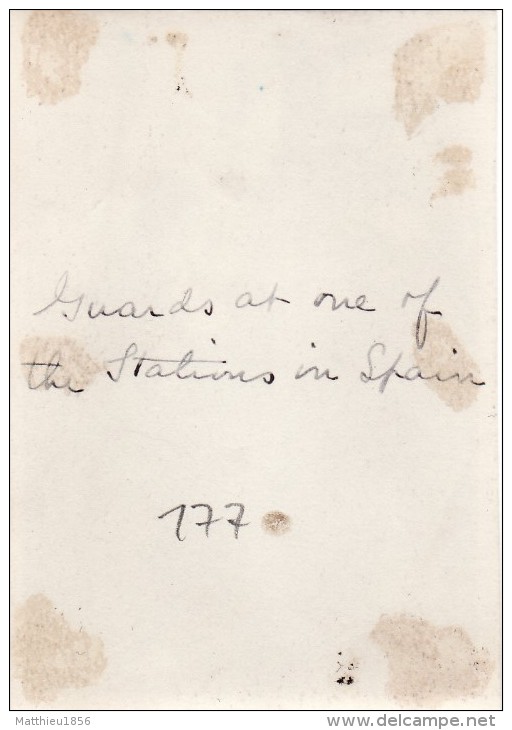 Guards at one of
the Stations in Spain
177
Matthieu1856
www.delcampe.net